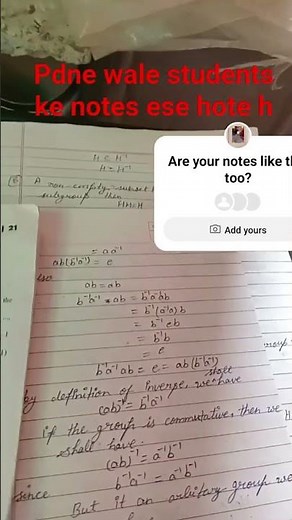 Pdne wale students
ke notes ese hote h
Are your notes like th
too?
Add yours
H ⊆ H⁻¹
H = H⁻¹
A non empty subset
subgroup then
HH=H
21
= aa⁻¹
ab(b⁻¹a⁻¹) = e
ab = ab
b⁻¹a⁻¹ * ab = b⁻¹a⁻¹ab
= b⁻¹(a⁻¹a)b
= b⁻¹eb
= b⁻¹b
= e
b⁻¹a⁻¹ab = e = ab(b⁻¹a⁻¹)
by definition of inverse, we have
(ab)⁻¹ = b⁻¹a⁻¹
if the group is commutative, then we
shall have
(ab)⁻¹ = a⁻¹b⁻¹
since b⁻¹a⁻¹ = a⁻¹b⁻¹
But if an arbitrary group we